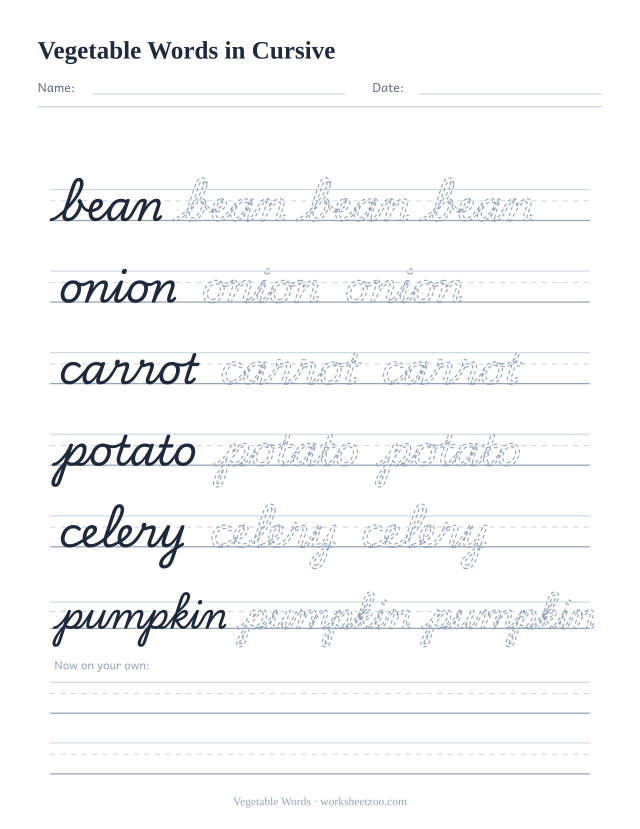 Vegetable Words in Cursive
Name: Date:
bean bean bean bean
onion onion onion
carrot carrot carrot
potato potato potato
celery celery celery
pumpkin pumpkin pumpkin
Now on your own:
Vegetable Words · worksheetzoo.com